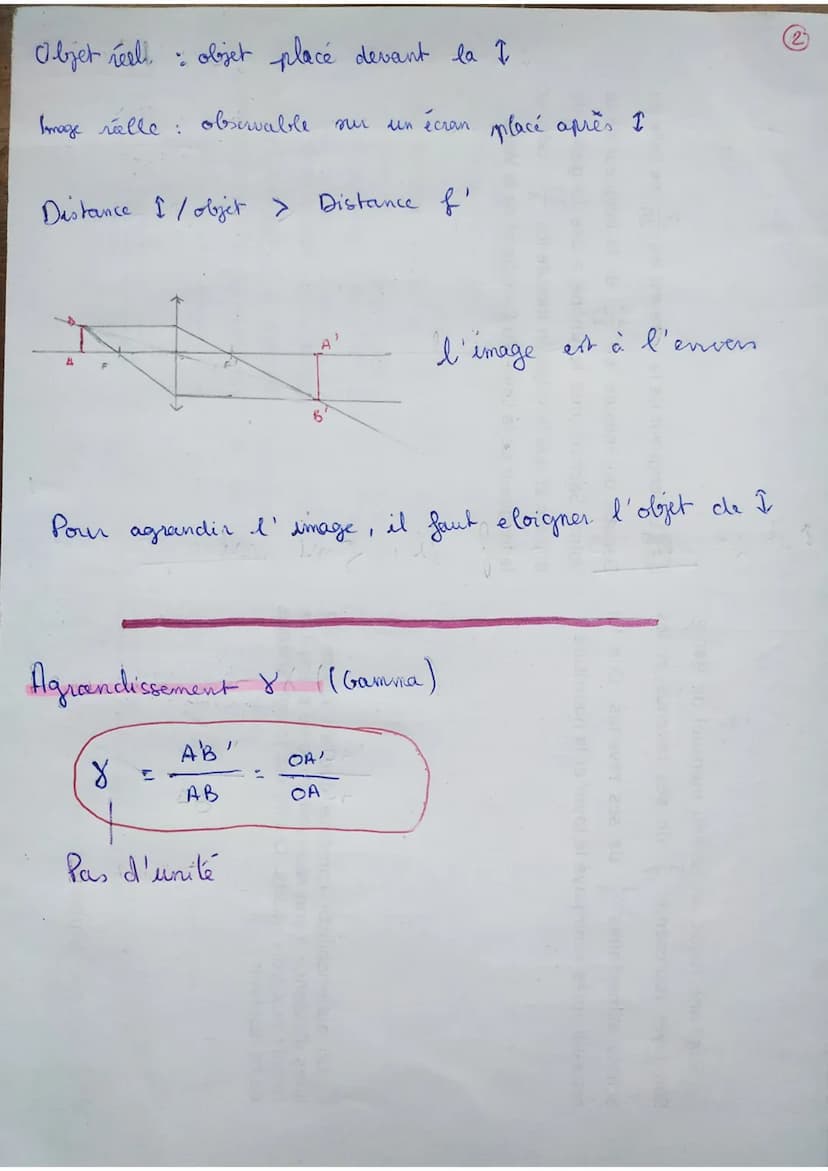 2
Objet réel : objet placé devant la ↕
Image réelle : observable sur un écran placé après ↕
Distance ↕ / objet > Distance f'
B
A'
A
F
F'
B'
l'image est à l'envers
Pour agrandir l'image, il faut eloigner l'objet de ↕
Agrandissement γ (Gamma)
γ = A'B' / AB = OA' / OA
Pas d'unité